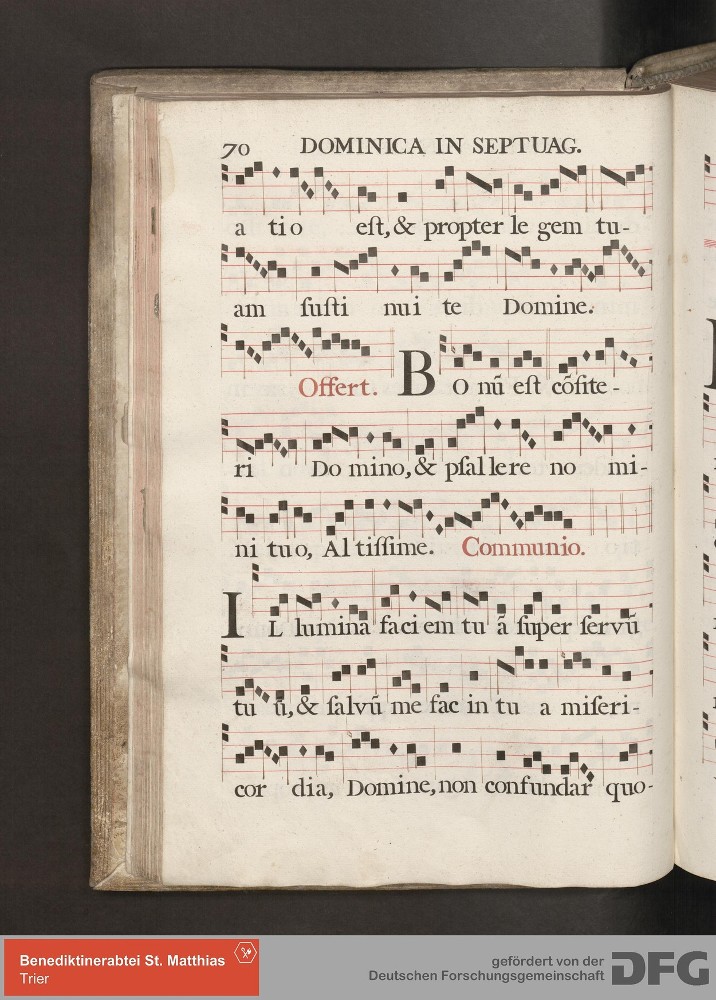 70 DOMINICA IN SEPTUAG.
a tio est, & propter le gem tu-
am ſuſti nui te Domine.
Offert. BO nũ eſt cõfite-
ri Do mino, & pſallere no mi-
ni tuo, Altiſſime. Communio.
IL lumina faciem tu ã ſuper ſervũ
tu ũ, & ſalvũ me fac in tu a miſeri-
cor dia, Domine, non confundar quo-
Benediktinerabtei St. Matthias
Trier
gefördert von der
Deutschen Forschungsgemeinschaft
DFG